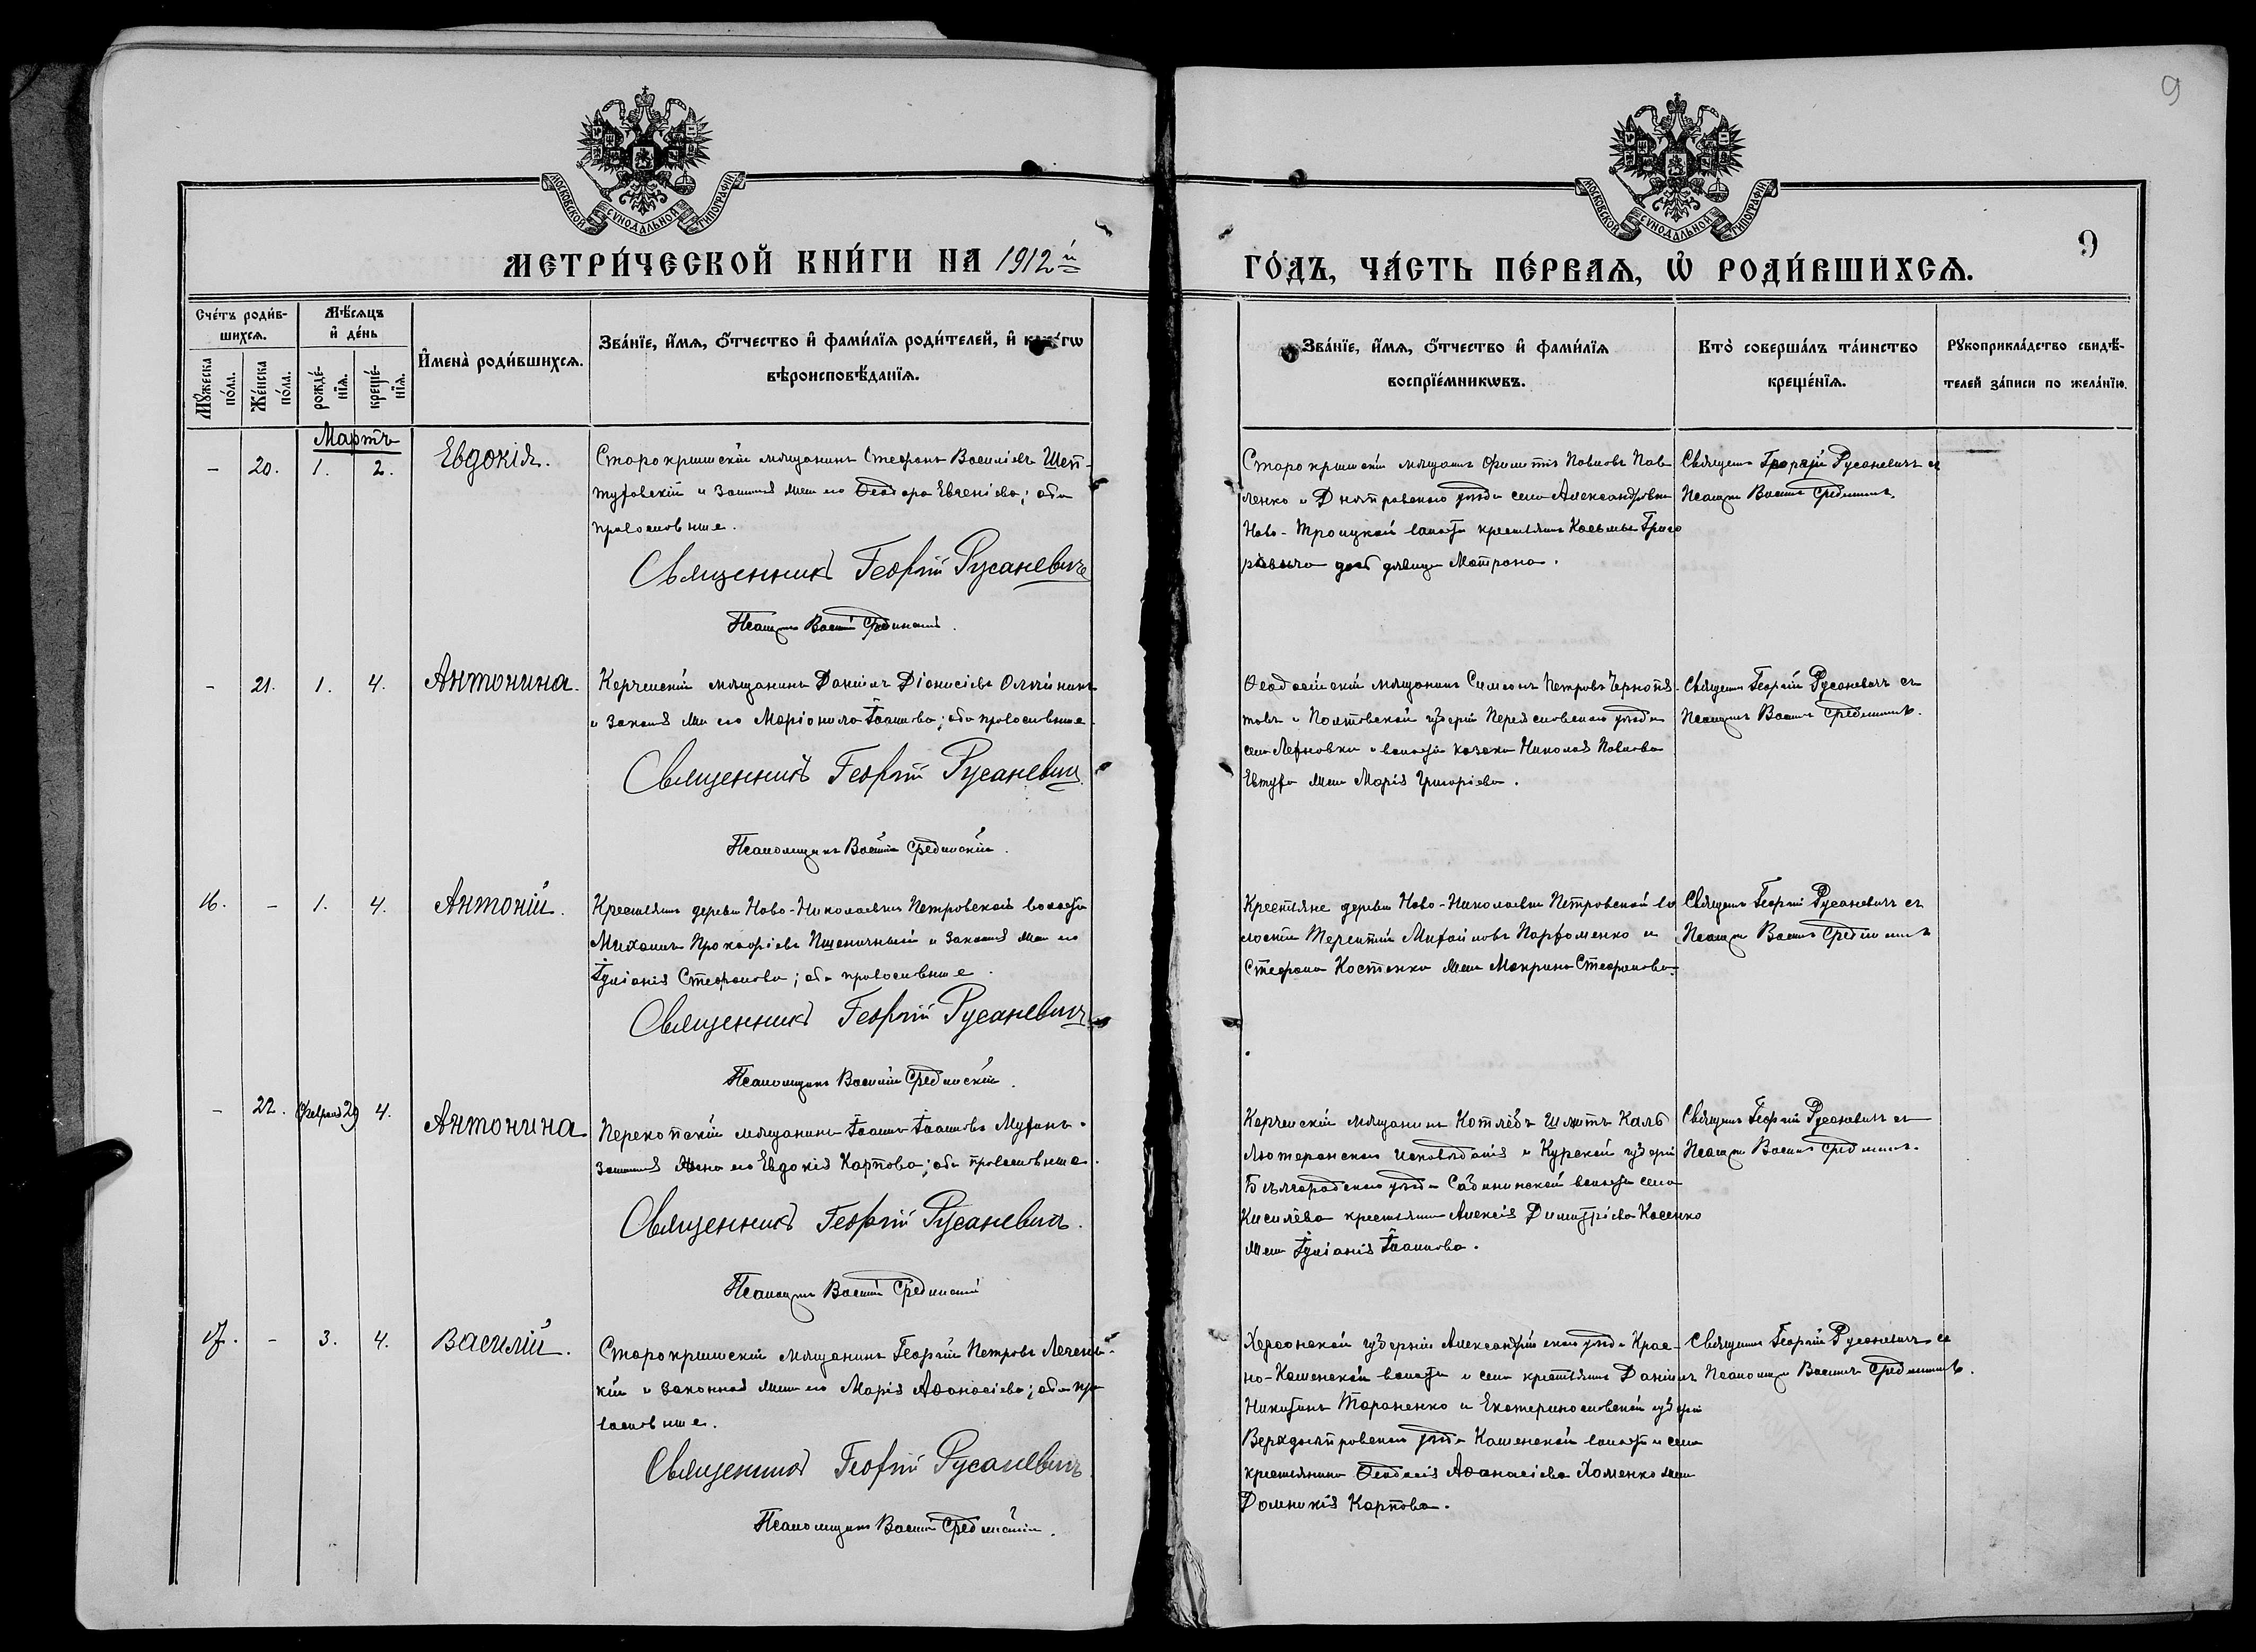 9
МОСКОВСКОЙ СУНОДАЛЬНОЙ ТИПОГРАФІИ
МОСКОВСКОЙ СУНОДАЛЬНОЙ ТИПОГРАФІИ
МЕТРИ́ЧЕСКОЙ КНИ́ГИ НА 1912й
ГО́ДЪ, ЧА́СТЬ ПЕ́РВАѦ, Ѡ҆ РОДИ́ВШИХСѦ.
9
Сче́тъ роди́в-
шихсѧ.
Мѣ́сѧцъ
и҆ де́нь
Мꙋ́жеска
по́ла.
Же́нска
по́ла.
рожде́-
нїѧ.
креще́-
нїѧ.
И҆мена̀ роди́вшихсѧ.
Зва́нїе, и҆́мѧ, ѻ҆́тчество и҆ фами́лїѧ роди́телей, и҆
вѣроисповѣ́данїѧ.
Зва́нїе, и҆́мѧ, ѻ҆́тчество и҆ фами́лїѧ
воспрїе́мникѡвъ.
Кто̀ соверша́лъ та́инство
креще́нїѧ.
Рꙋкоприкла́дство свидѣ́-
телей за́писи по жела́нїю.
Мартъ
- 20. 1. 2. Евдокія.
Старокрымскій мѣщанинъ Стефанъ Васильевъ Шеп-
и жена его Ѳеодора Евгеніева; оба
православные.
Священникъ Георгій Русаневичъ
Псаломщикъ Василій Срединскій.
Старокрымскій мѣщанинъ Павловъ Пав-
ленко и Днѣпровскаго уѣзда села Александровки
Ново-Троицкой волости крестьянина Косьмы Григо
дочь дѣвица Матрона.
Священникъ Георгій Русаневичъ съ
Псаломщ Василіемъ Срединскимъ.
- 21. 1. 4. Антонина.
Керченскій мѣщанинъ Даніилъ Діонисіевъ Олейникъ
и законная жена его Маріонила Іоаннова; оба православные.
Священникъ Георгій Русаневичъ
Псаломщикъ Василій Срединскій.
Ѳеодосійскій мѣщанинъ Симеонъ Петровъ
и Полтавской губерніи Переяславскаго уѣзда
села и волости казака Николая Павлова
жена Марія Григоріева.
Священникъ Георгій Русаневичъ съ
Псаломщ Василіемъ Срединскимъ.
16. - 1. 4. Антоній.
Крестьянинъ деревни Ново-Николаевки Петровской волости
Михаилъ Прокофіевъ Пшеничный и законная жена его
Іуліанія Стефанова; оба православные.
Священникъ Георгій Русаневичъ
Псаломщикъ Василій Срединскій.
Крестьяне деревни Ново-Николаевки Петровской во
лости Терентій Михайловъ Парфоменко и
Стефана Костенко жена Макрина Стефанова.
Священникъ Георгій Русаневичъ съ
Псаломщ Василіемъ Срединскимъ
- 22. Февраля 29 4. Антонина
Перекопскій мѣщанинъ Іоаннъ Іоанновъ
законная жена его Евдокія Карпова; оба православные.
Священникъ Георгій Русаневичъ.
Псаломщикъ Василій Срединскій
Керченскій мѣщанинъ Готлибъ Шмитъ
Лютеранскаго исповѣданія и Курской губерніи
Бѣлгородскаго уѣзда волости села
Киселёва крестьянина Алексія Димитріева Косенко
жена Іуліанія Іоаннова.
Священникъ Георгій Русаневичъ съ
Псаломщ Василіемъ Срединскимъ.
17. - 3. 4. Василій.
Старокрымскій мѣщанинъ Георгій Петровъ
и законная жена его Марія Аѳанасіева; оба пра
вославные.
Священникъ Георгій Русаневичъ
Псаломщикъ Василій Срединскій.
Херсонской губерніи Александрійскаго уѣзда Крас-
но-Каменской волости и села крестьянинъ Даніилъ
Никитинъ Тараненко и Екатеринославской губерніи
Верхднѣпровскаго уѣзда Каменской волости и села
крестьянина Ѳеодосія Аѳанасіева Хоменко жена
Домникія Карпова.
Священникъ Георгій Русаневичъ съ
Псаломщ Василіемъ Срединскимъ.